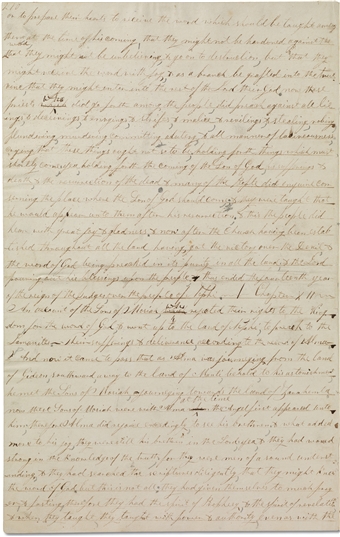 to prepare their hearts to receive the word which should be taught among
them at the time of his coming that they might not be hardened against the
word that they might not be unbelieving & go on to destruction but that they
might receive the word with joy & as a branch be grafted into the true
vine that they might enter into the rest of the Lord their God now those
priests which did go forth among the people did preach against all lyings
& deceivings & envyings & strifes & malice & revilings & stealing robbing
plundering murdering committing adultery & all manner of lasciviousness
crying that these things ought not so to be holding forth things which must
shortly come yea holding forth the coming of the Son of God his sufferings &
death & the resurrection of the dead & many of the people did inquire con
cerning the place where the Son of God should come & they were taught that
he would appear unto them after his resurrection & this the people did
hear with great joy & gladness & now after the church having been estab
lished throughout all the land having got the victory over the Devil &
the word of God being preached in its purity in all the land & the Lord
pouring out his blessings upon the people thus ended the fourteenth year
of the reign of the Judges over the people of Nephi Chapter
An account of the Sons of Mosiah who rejected their rights to the King
dom for the word of God & went up to the land of Nephi to preach to the
Lamanites their sufferings & deliverance according to the record of Alma
& And now it came to pass that as Alma was journeying from the land
of Gideon southward away to the land of Manti behold to his astonishment
he met the Sons of Mosiah a journeying towards the land of Zarahemla
now these Sons of Mosiah were with Alma at the time the Angel first appeared unto
him therefore Alma did rejoice exceedingly to see his brethren & what added
more to his joy they were still his brethren in the Lord yea & they had waxed
strong in the knowledge of the truth for they were men of a sound underst
anding & they had searched the scriptures diligently that they might know
the word of God but this is not all they had given themselves to much pray
er & fasting therefore they had the spirit of Prophecy & the spirit of revelation
& when they taught they taught with power & authority even as with the